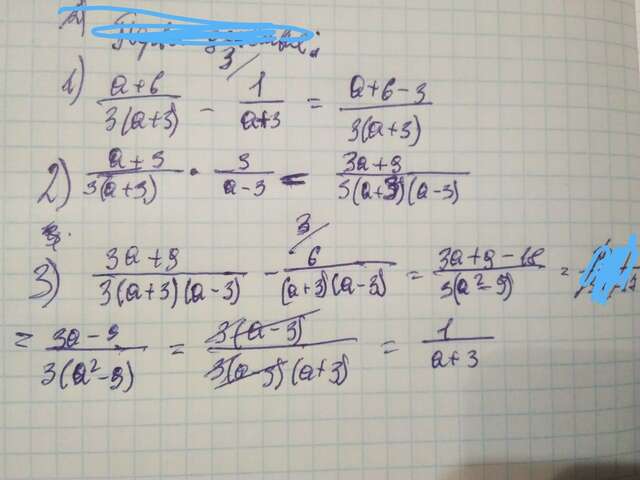 1) \frac{a+6}{3(a+3)} - \frac{1}{a+3}^{3/} = \frac{a+6-3}{3(a+3)}
2) \frac{a+3}{3(a+3)} · \frac{3}{a-3} = \frac{3a+9}{3(a+3)(a-3)}
3) \frac{3a+9}{3(a+3)(a-3)} - \frac{6}{(a+3)(a-3)}^{3/} = \frac{3a+9-18}{3(a²-9)} =
= \frac{3a-9}{3(a²-9)} = \frac{3(a-3)}{3(a-3)(a+3)} = \frac{1}{a+3}